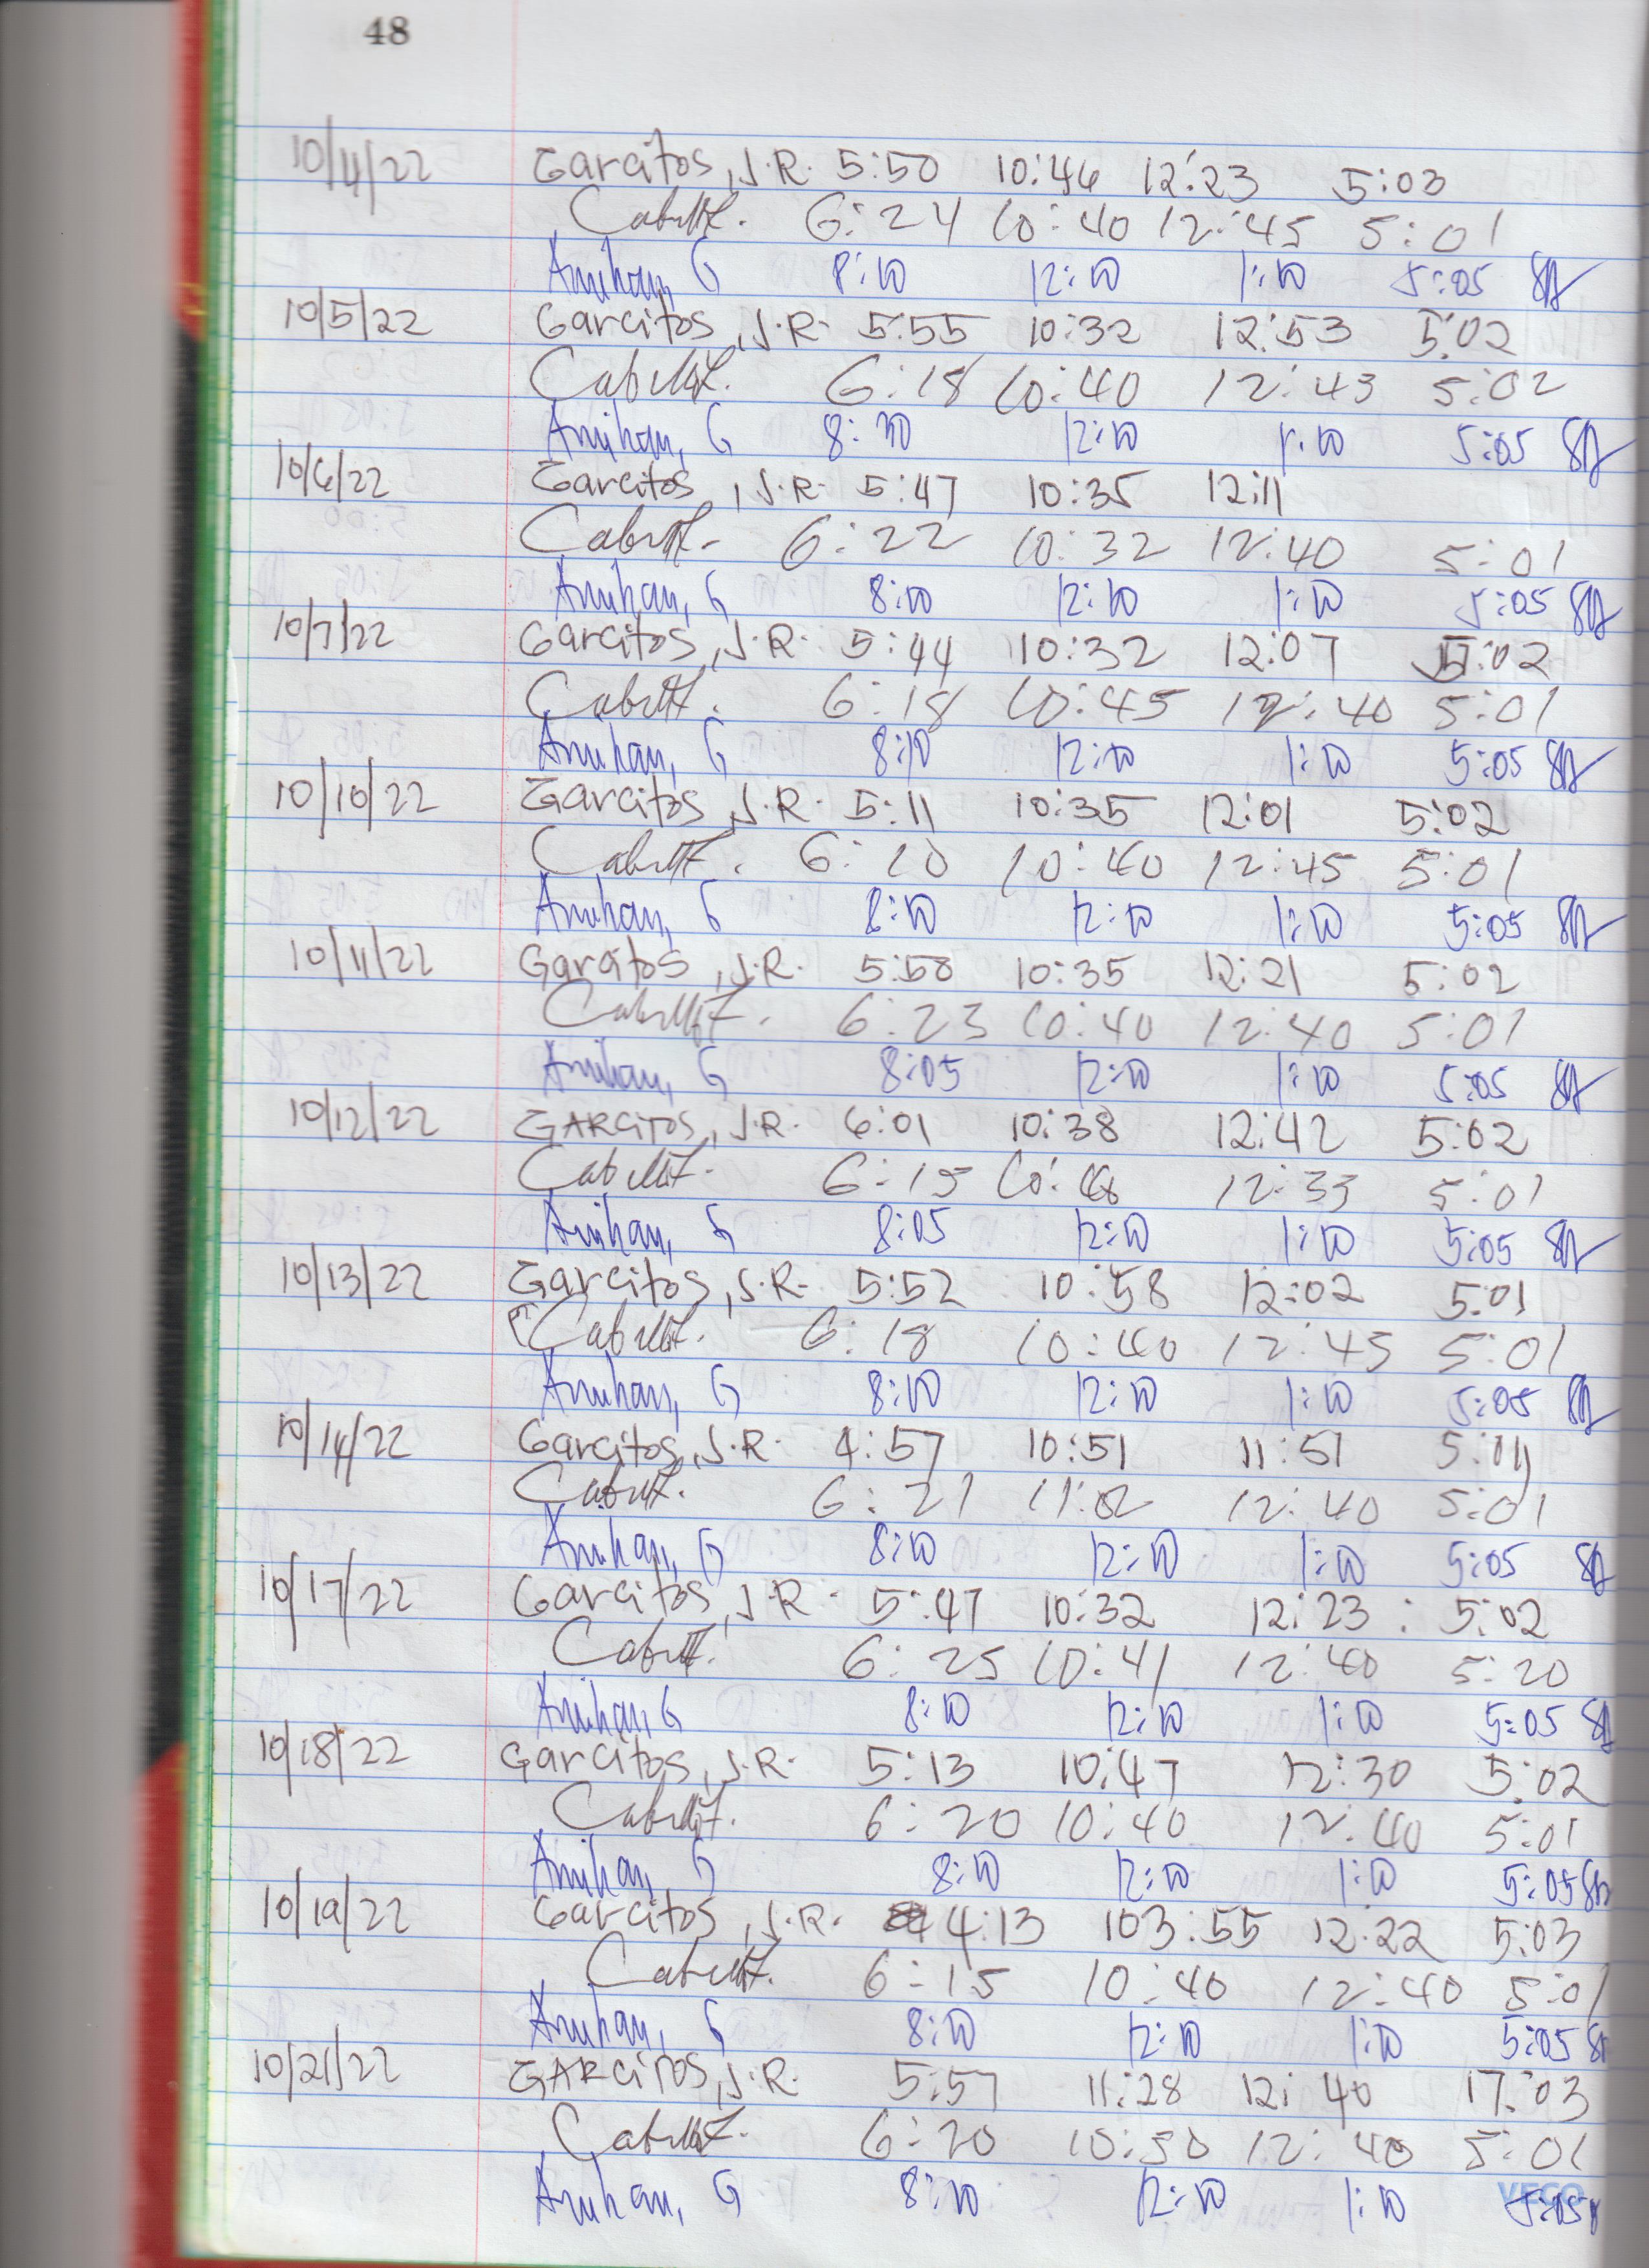 48
10/4/22 Garcitos, J.R. 5:50 10:46 12:23 5:03
6:24 10:40 12:45 5:01
Amihan, G 8:10 12:10 1:10 5:05
10/5/22 Garcitos, J.R. 5:55 10:32 12:53 5:02
6:18 10:40 12:43 5:02
Amihan, G 8:10 12:10 1:10 5:05
10/6/22 Garcitos, J.R. 5:47 10:35 12:11
6:22 10:32 12:40 5:01
Amihan, G 8:10 12:10 1:10 5:05
10/7/22 Garcitos, J.R. 5:44 10:32 12:07 5:02
6:18 10:45 12:40 5:01
Amihan, G 8:10 12:10 1:10 5:05
10/10/22 Garcitos, J.R. 5:11 10:35 12:01 5:02
6:10 10:40 12:45 5:01
Amihan, G 8:10 12:10 1:10 5:05
10/11/22 Garcitos, J.R. 5:58 10:35 12:21 5:02
6:23 10:40 12:40 5:01
Amihan, G 8:05 12:10 1:10 5:05
10/12/22 GARCITOS, J.R. 6:01 10:38 12:42 5:02
6:15 12:33 5:01
Amihan, G 8:05 12:10 1:10 5:05
10/13/22 Garcitos, J.R. 5:52 10:58 12:02 5:01
6:18 10:40 12:45 5:01
Amihan, G 8:10 12:10 1:10 5:05
10/14/22 Garcitos, J.R. 4:57 10:51 11:51 5:01
6:21 11:02 12:40 5:01
Amihan, G 8:10 12:10 1:10 5:05
10/17/22 Garcitos, J.R. 5:47 10:32 12:23 : 5:02
6:25 10:41 12:40 5:20
Amihan, G 8:10 12:10 1:10 5:05
10/18/22 Garcitos, J.R. 5:13 10:47 12:30 5:02
6:20 10:40 12:40 5:01
Amihan, G 8:10 12:10 1:10 5:05
10/19/22 Garcitos, J.R. 4:13 103:55 12:22 5:03
6:15 10:40 12:40 5:01
Amihan, G 8:10 12:10 1:10 5:05
10/21/22 GARCITOS, J.R. 5:57 11:28 12:40 17:03
6:20 10:50 12:40 5:01
Amihan, G 8:10 12:10 1:10 5:05
VECO